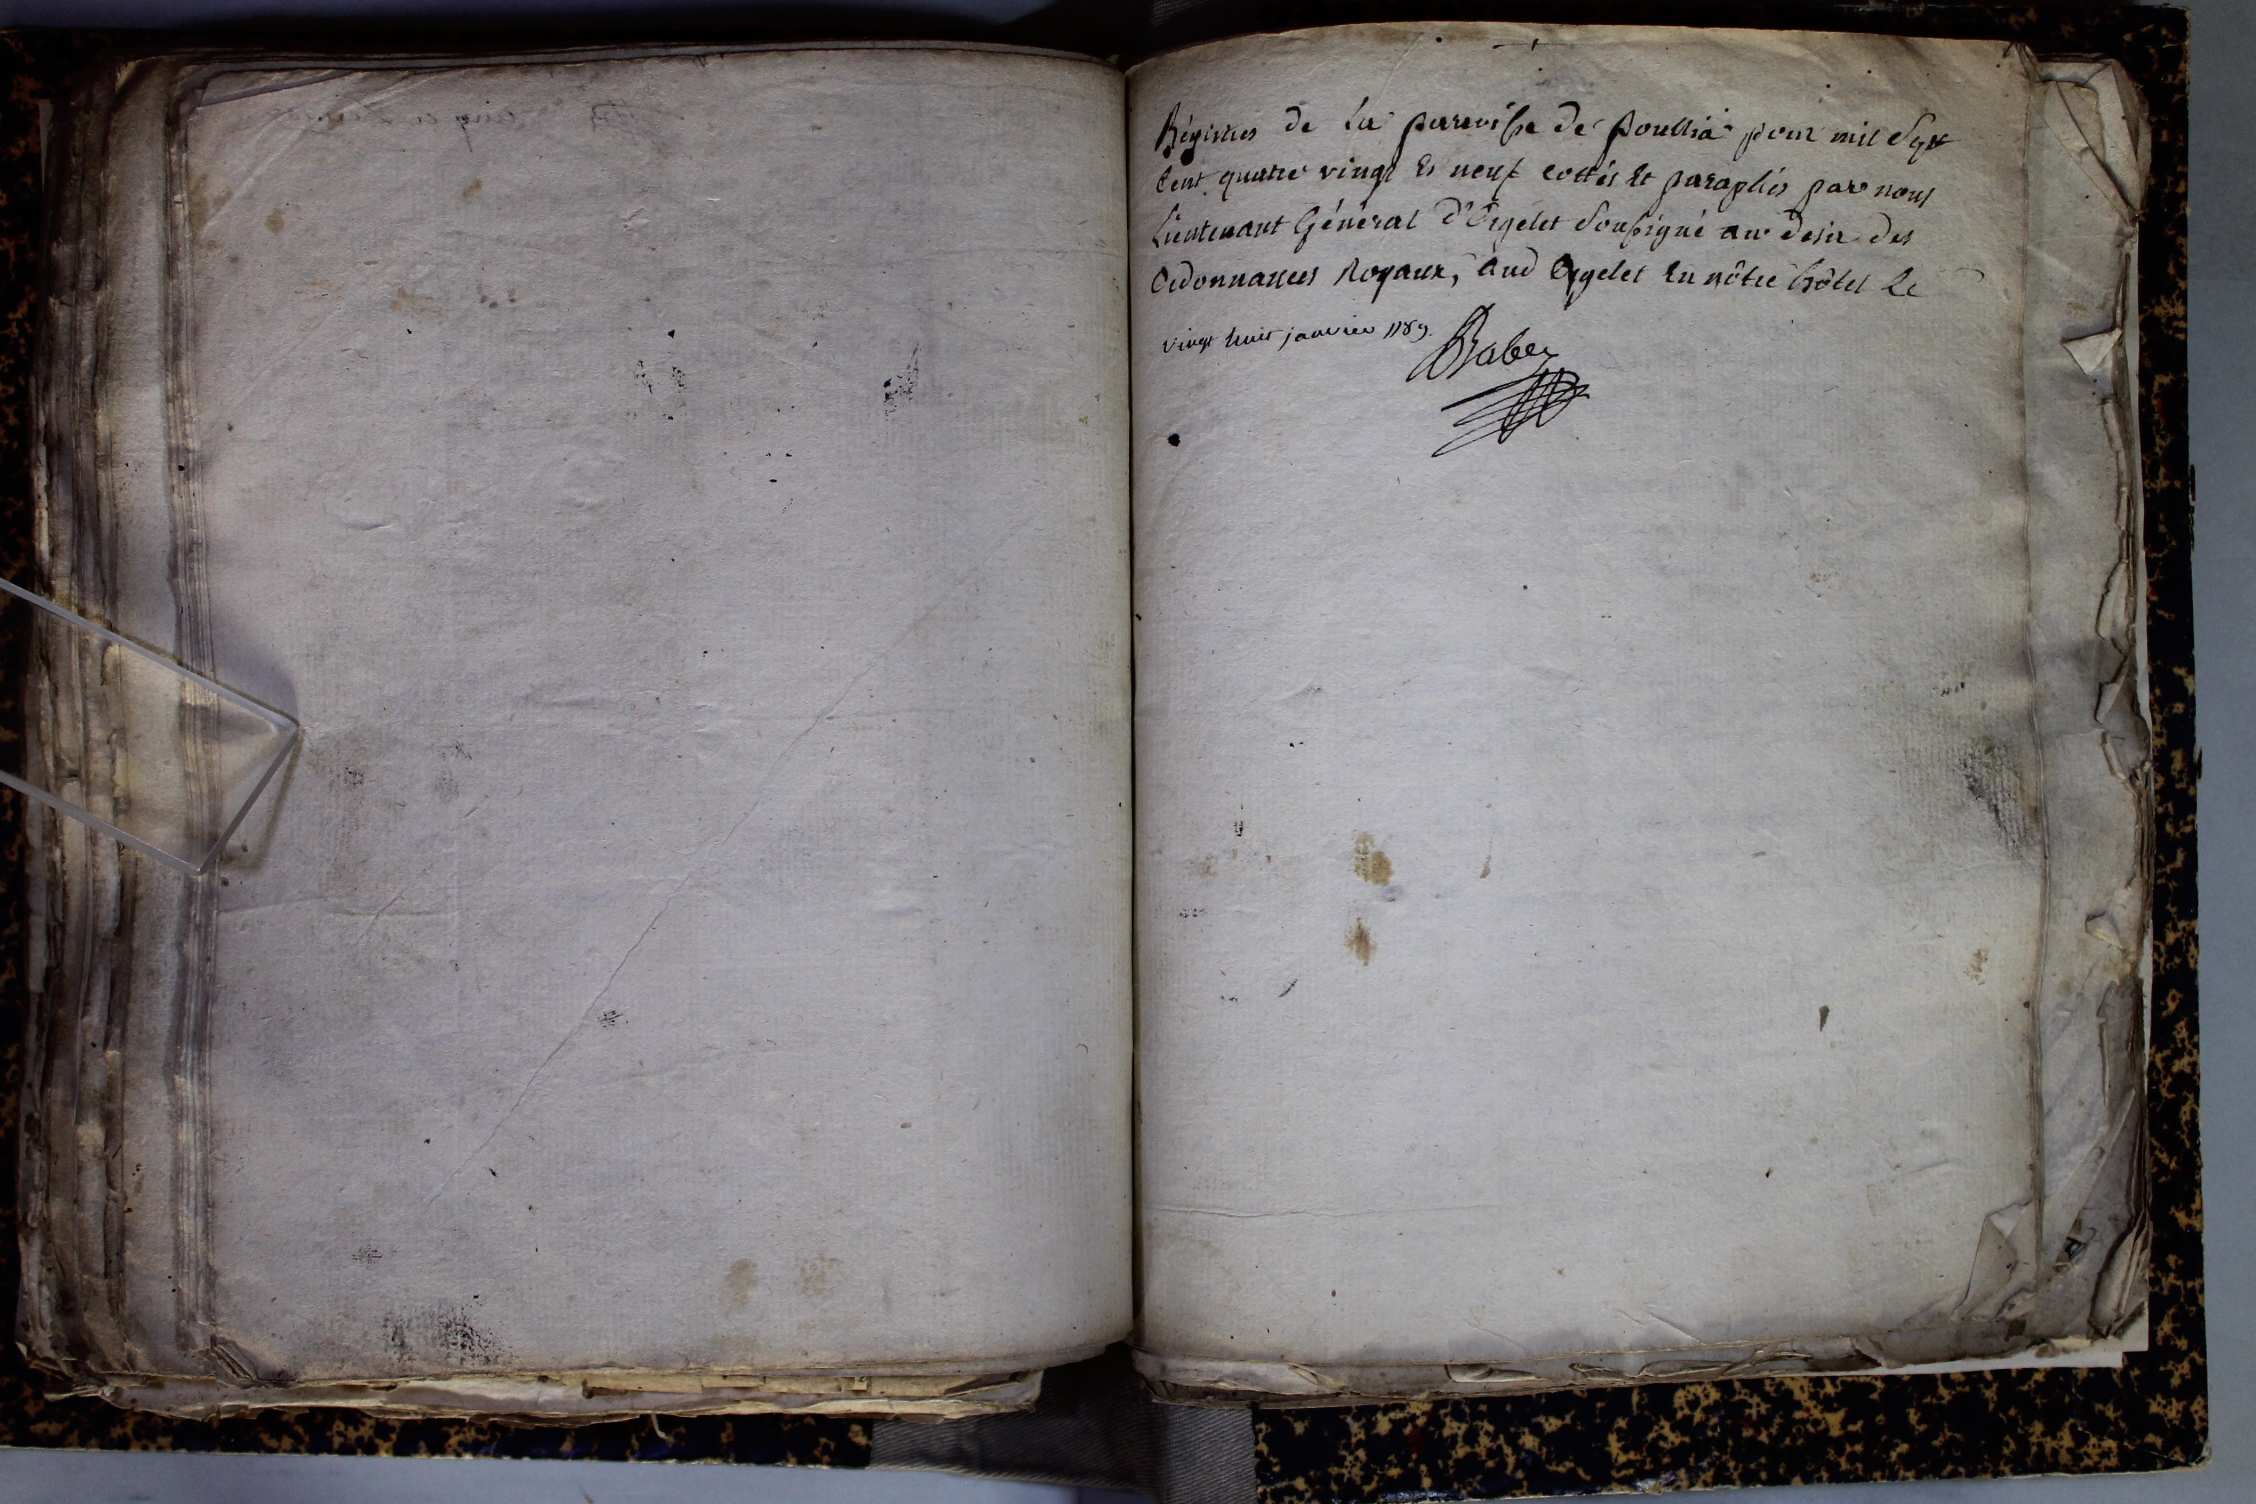 Régistres de La paroisse de poullia pour mil Sept
Cent quatre vingt et neuf cottés Et paraphés par nous
Lieutenant Général d'Orgelet Soussigné au desir des
Ordonnances Royaux, Aud Orgelet En nôtre hôtel Le
vingt huit janvier 1789.
Babey